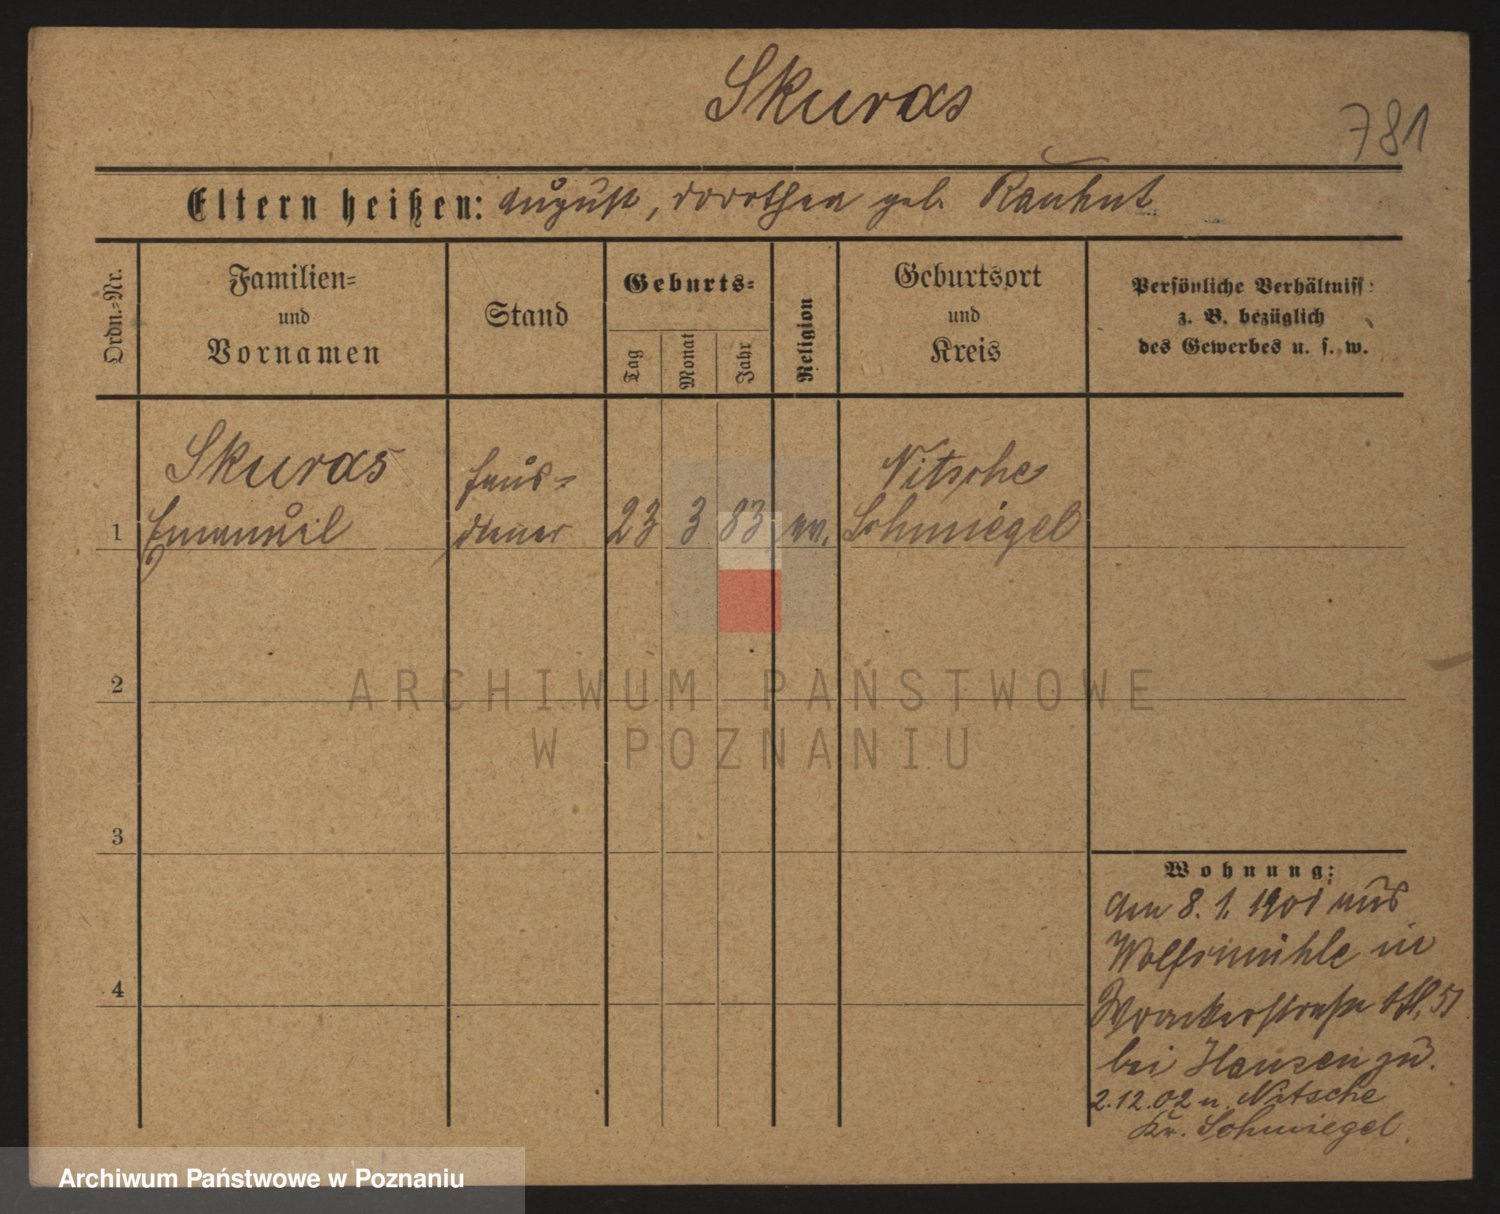 Skuras
781
Eltern heißen: August, Dorothea geb. Rauhut
Ordn.-Nr.
Familien-
und
Vornamen
Stand
Geburts-
Tag
Monat
Jahr
Religion
Geburtsort
und
Kreis
Persönliche Verhältniss
z. B. bezüglich
des Gewerbes u. s. w.
1
Skuras
Emanuel
Haus-
diener
23
3
83
ev.
Nitsche
Schmiegel
2
3
4
Wohnung:
Am 8. 1. 1901 aus
Wolfsmühle in
bei Hansen zu.
2.12.02 n. Nitsche
Kr. Schmiegel.
ARCHIWUM PAŃSTWOWE
W POZNANIU
Archiwum Państwowe w Poznaniu